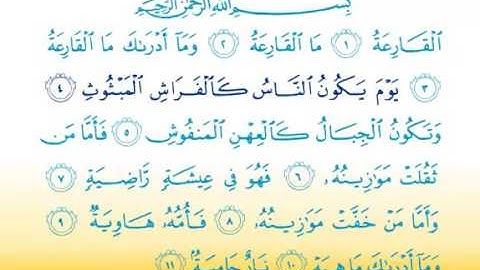 بِسْمِ اللَّهِ الرَّحْمَٰنِ الرَّحِيمِ
الْقَارِعَةُ ١ مَا الْقَارِعَةُ ٢ وَمَا أَدْرَىٰكَ مَا الْقَارِعَةُ
٣ يَوْمَ يَكُونُ النَّاسُ كَالْفَرَاشِ الْمَبْثُوثِ ٤
وَتَكُونُ الْجِبَالُ كَالْعِهْنِ الْمَنفُوشِ ٥ فَأَمَّا مَن
ثَقُلَتْ مَوَٰزِينُهُۥ ٦ فَهُوَ فِي عِيشَةٍ رَّاضِيَةٍ ٧
وَأَمَّا مَنْ خَفَّتْ مَوَٰزِينُهُۥ ٨ فَأُمُّهُۥ هَاوِيَةٌ ٩
وَمَا أَدْرَىٰكَ مَا هِيَهْ ١٠ نَارٌ حَامِيَةٌ ١١